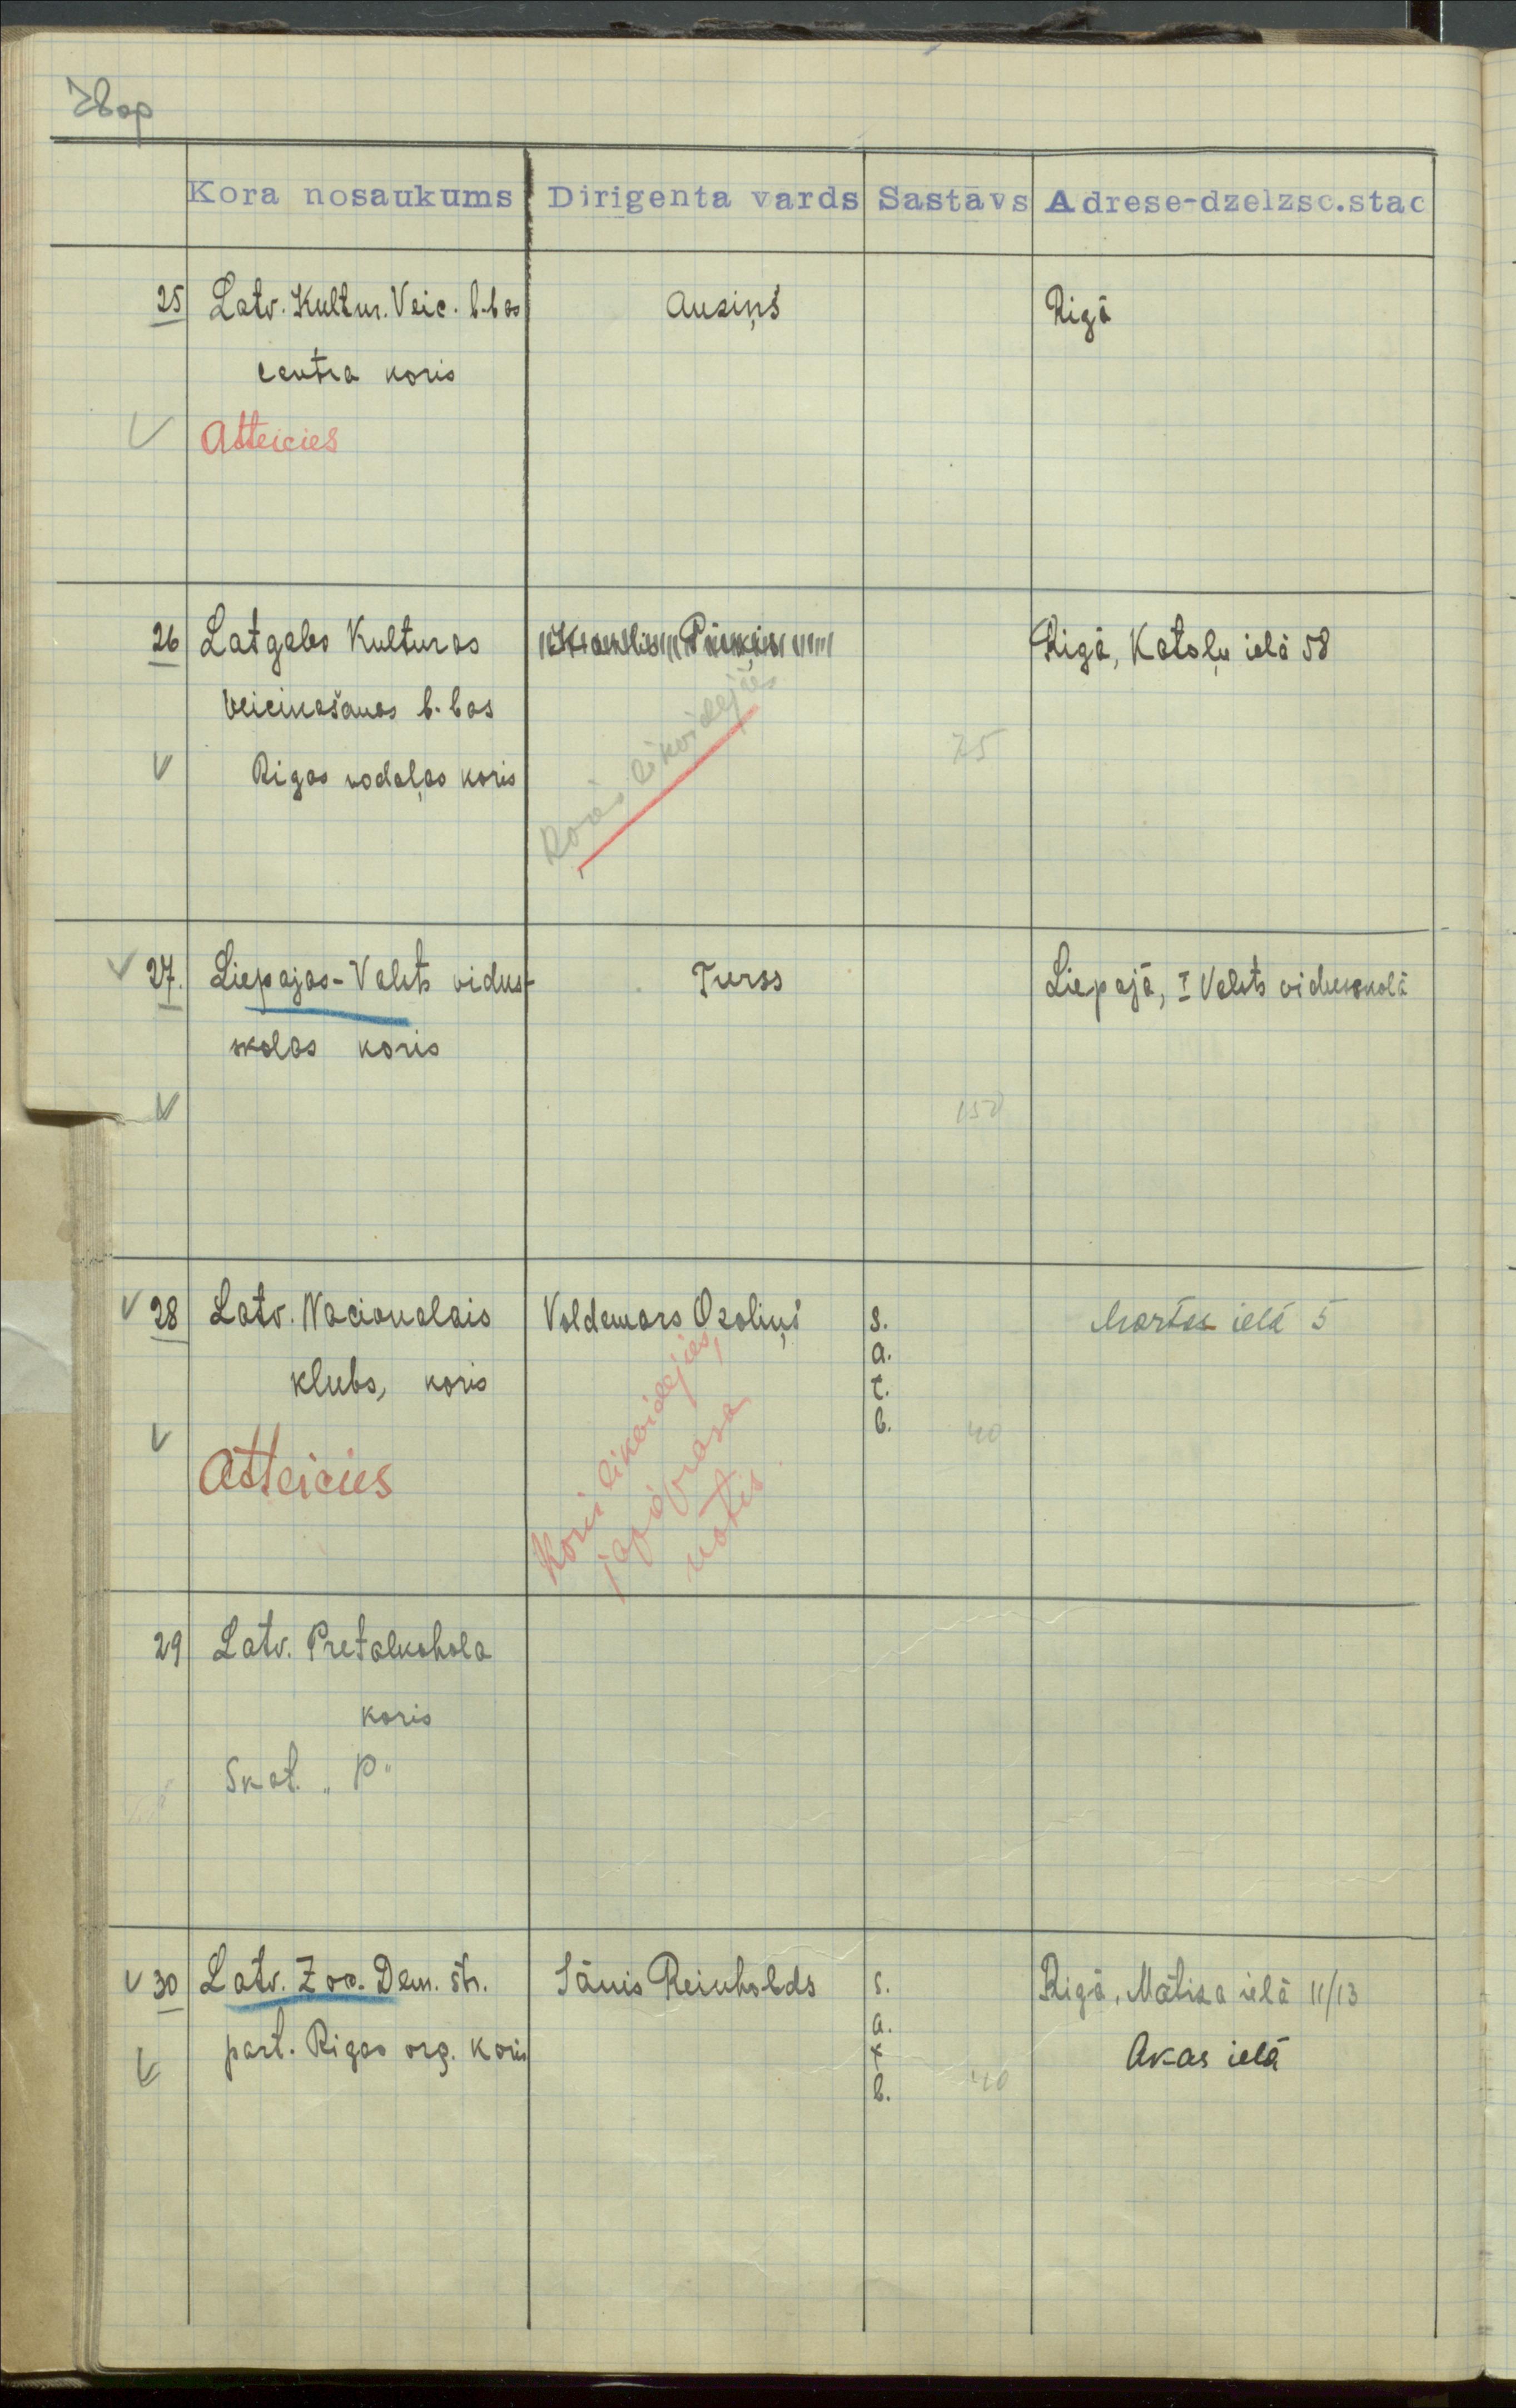 78op
Kora nosaukums Dirigenta vards Sastāvs Adrese-dzelzsc.stac
25 Latv. Kultur. Veic. b-bas Ausiņš Rigā
centra koris
V Atteicies
26 Latgales Kulturas Rigā, Katoļu ielā 58
Veicinašanas b-bas
V Rigas nodaļas koris 75
Koris likvidejies
V 27. Liepajas-Valsts vidus- Turss Liepajā, I Valsts vidusskolā
skolas koris
V 150
V 28 Latv. Nacionalais Voldemars Ozoliņš s. Martas ielā 5
klubs, koris a.
t.
V b. 40
Atteicies
Koris likvidejies,
japieprasa
notis.
29 Latv. Pretalkohola
koris
Skat. „P"
V 30 Latv. Zoc. Dem. str. Jānis Reinholds s. Rigā, Matisa ielā 11/13
part. Rigas org. koris a. Akas ielā
V t
b. 40